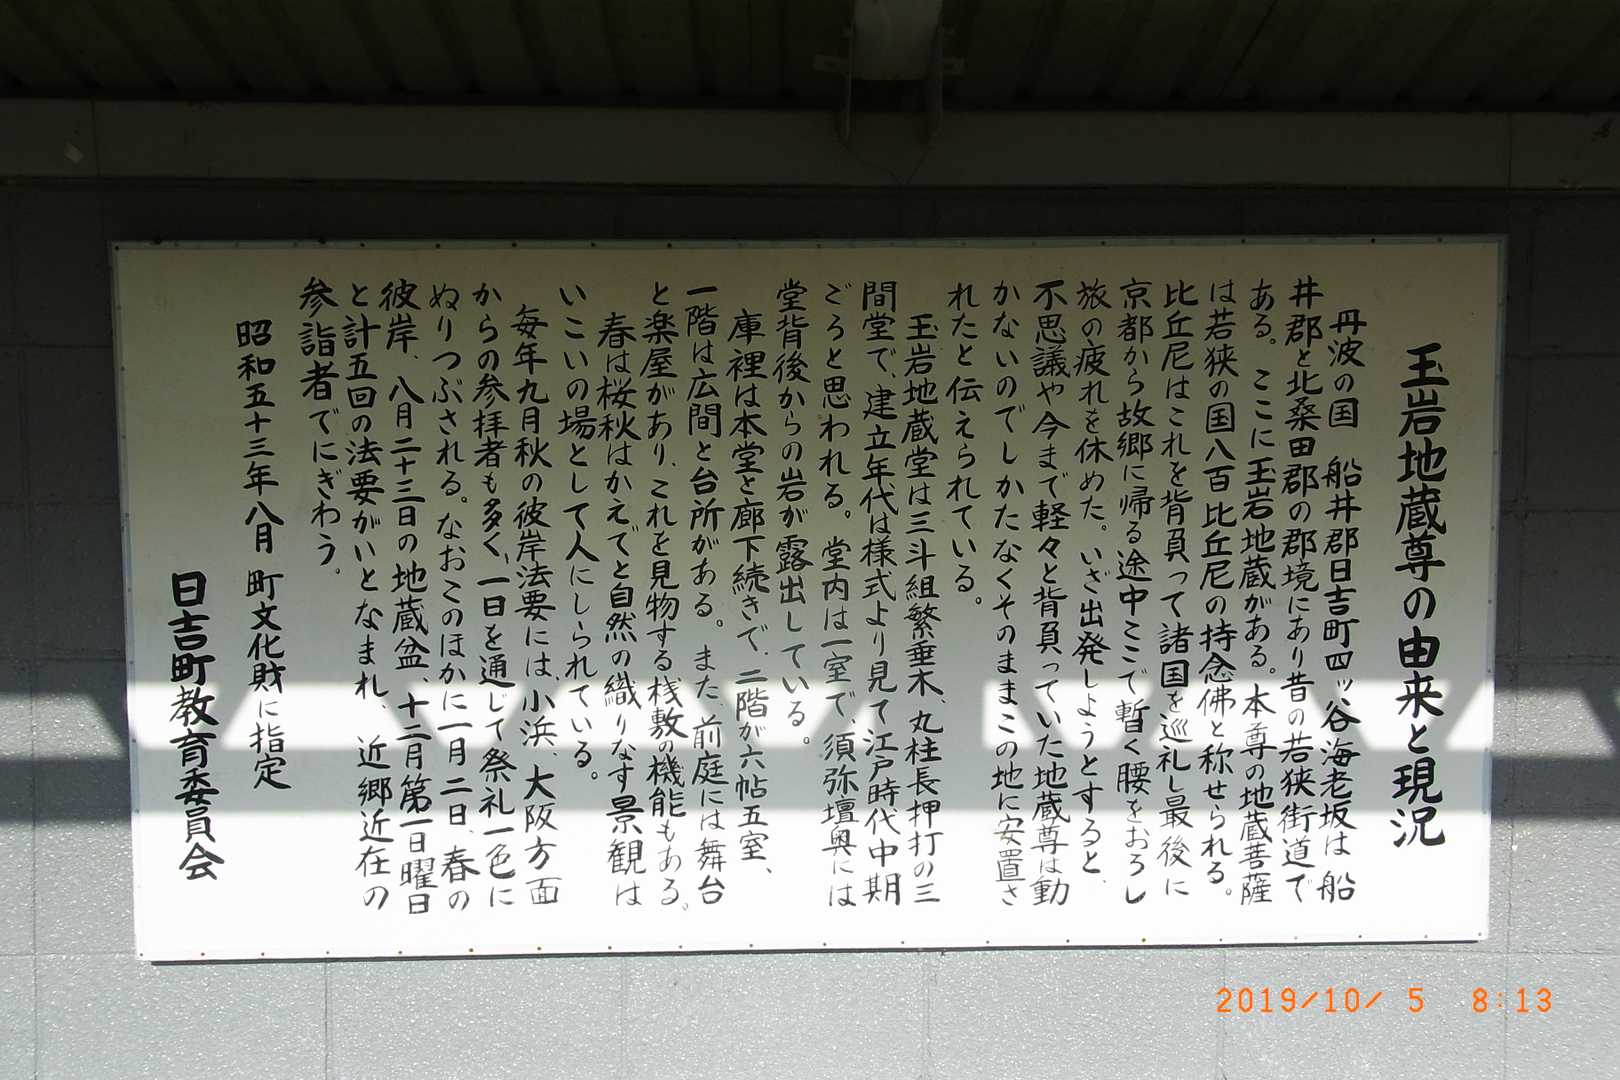 玉岩地蔵尊の由来と現況
丹波の国 船井郡日吉町四ッ谷海老坂は船
井郡と北桑田郡の郡境にあり昔の若狭街道で
ある。ここに玉岩地蔵がある。本尊の地蔵菩薩
は若狭の国八百比丘尼の持念佛と称せられる。
比丘尼はこれを背負って諸国を巡礼し最後に
京都から故郷に帰る途中ここで暫く腰をおろし
旅の疲れを休めた。いざ出発しようとすると、
不思議や今まで軽々と背負っていた地蔵尊は動
かないのでしかたなくそのままこの地に安置さ
れたと伝えられている。
玉岩地蔵堂は三斗組繁垂木、丸柱長押打の三
間堂で、建立年代は様式より見て江戸時代中期
ごろと思われる。堂内は一室で、須弥壇奥には
堂背後からの岩が露出している。
庫裡は本堂と廊下続きで、二階が六帖五室、
一階は広間と台所がある。また、前庭には舞台
と楽屋があり、これを見物する桟敷の機能もある。
春は桜秋はかえでと自然の織りなす景観は
いこいの場として人にしられている。
毎年九月秋の彼岸法要には、小浜、大阪方面
からの参拝者も多く、一日を通じて祭礼一色に
ぬりつぶされる。なおこのほかに一月二日、春の
彼岸、八月二十三日の地蔵盆、十二月第一日曜日
と計五回の法要がいとなまれ、近郷近在の
参詣者でにぎわう。
昭和五十三年八月 町文化財に指定
日吉町教育委員会
2019/10/ 5 8:13